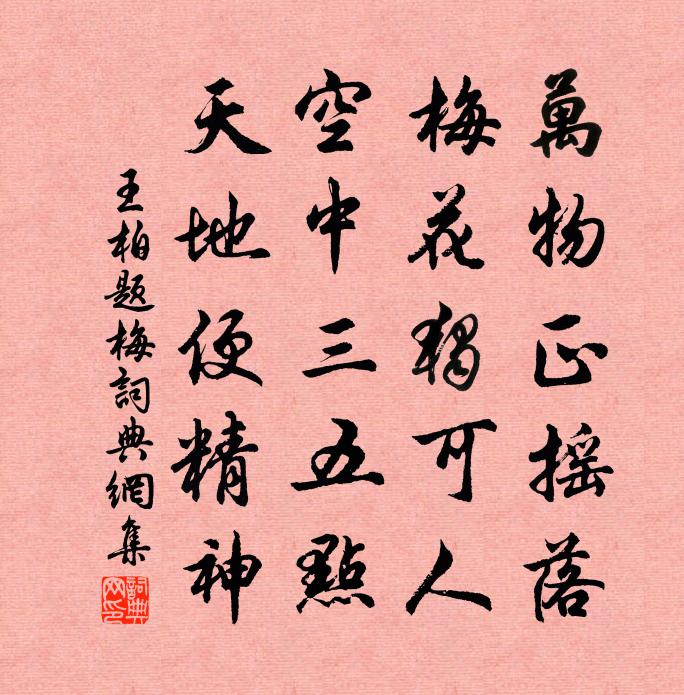 萬物正摇落
梅花獨可人
空中三五點
天地便精神
王柏題梅詞典網集
詞典網印